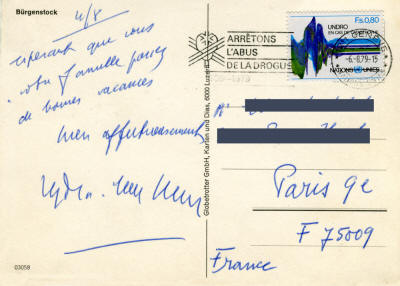 Bürgenstock
4/8
espérant que vous
votre famille passez
de bonnes vacances
bien affectueusement
03059
Globetrotter GmbH, Karten und Dias, 6000 Luzern
ARRÊTONS
L'ABUS
DE LA DROGUE
UNDRO
Fs.0,80
NATIONS UNIES
-6.-8.79-15
Paris 9e
F 75009
France